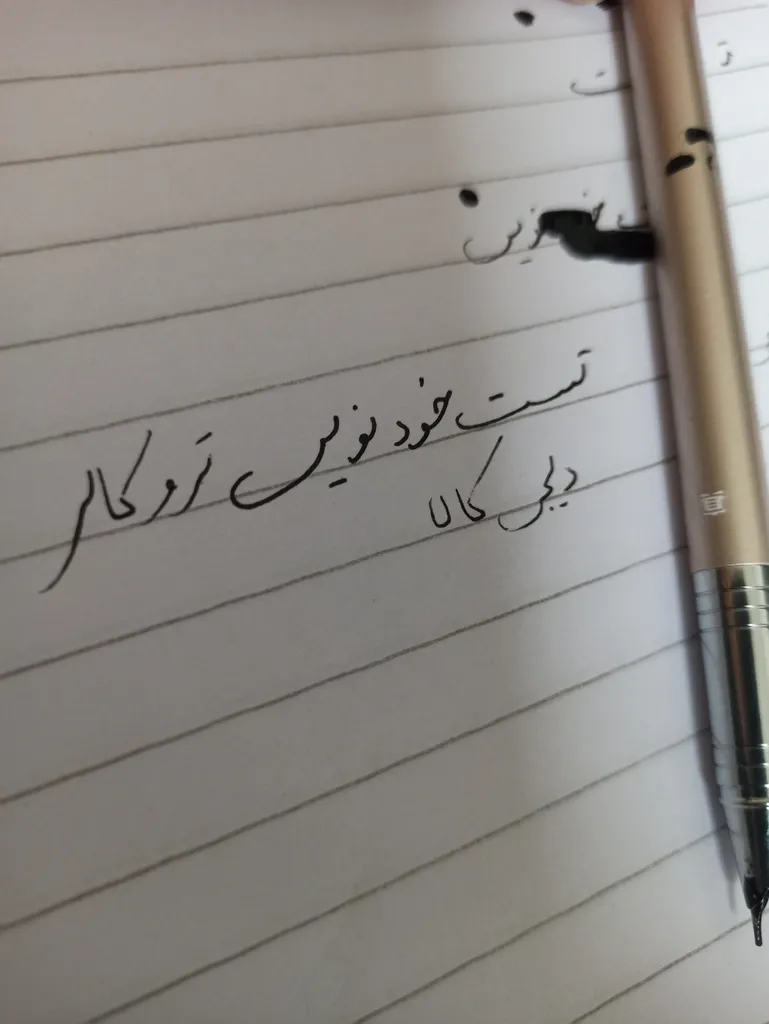 ت
خودنویس
تست خودنویس تروکالر
دیجی کالا
真